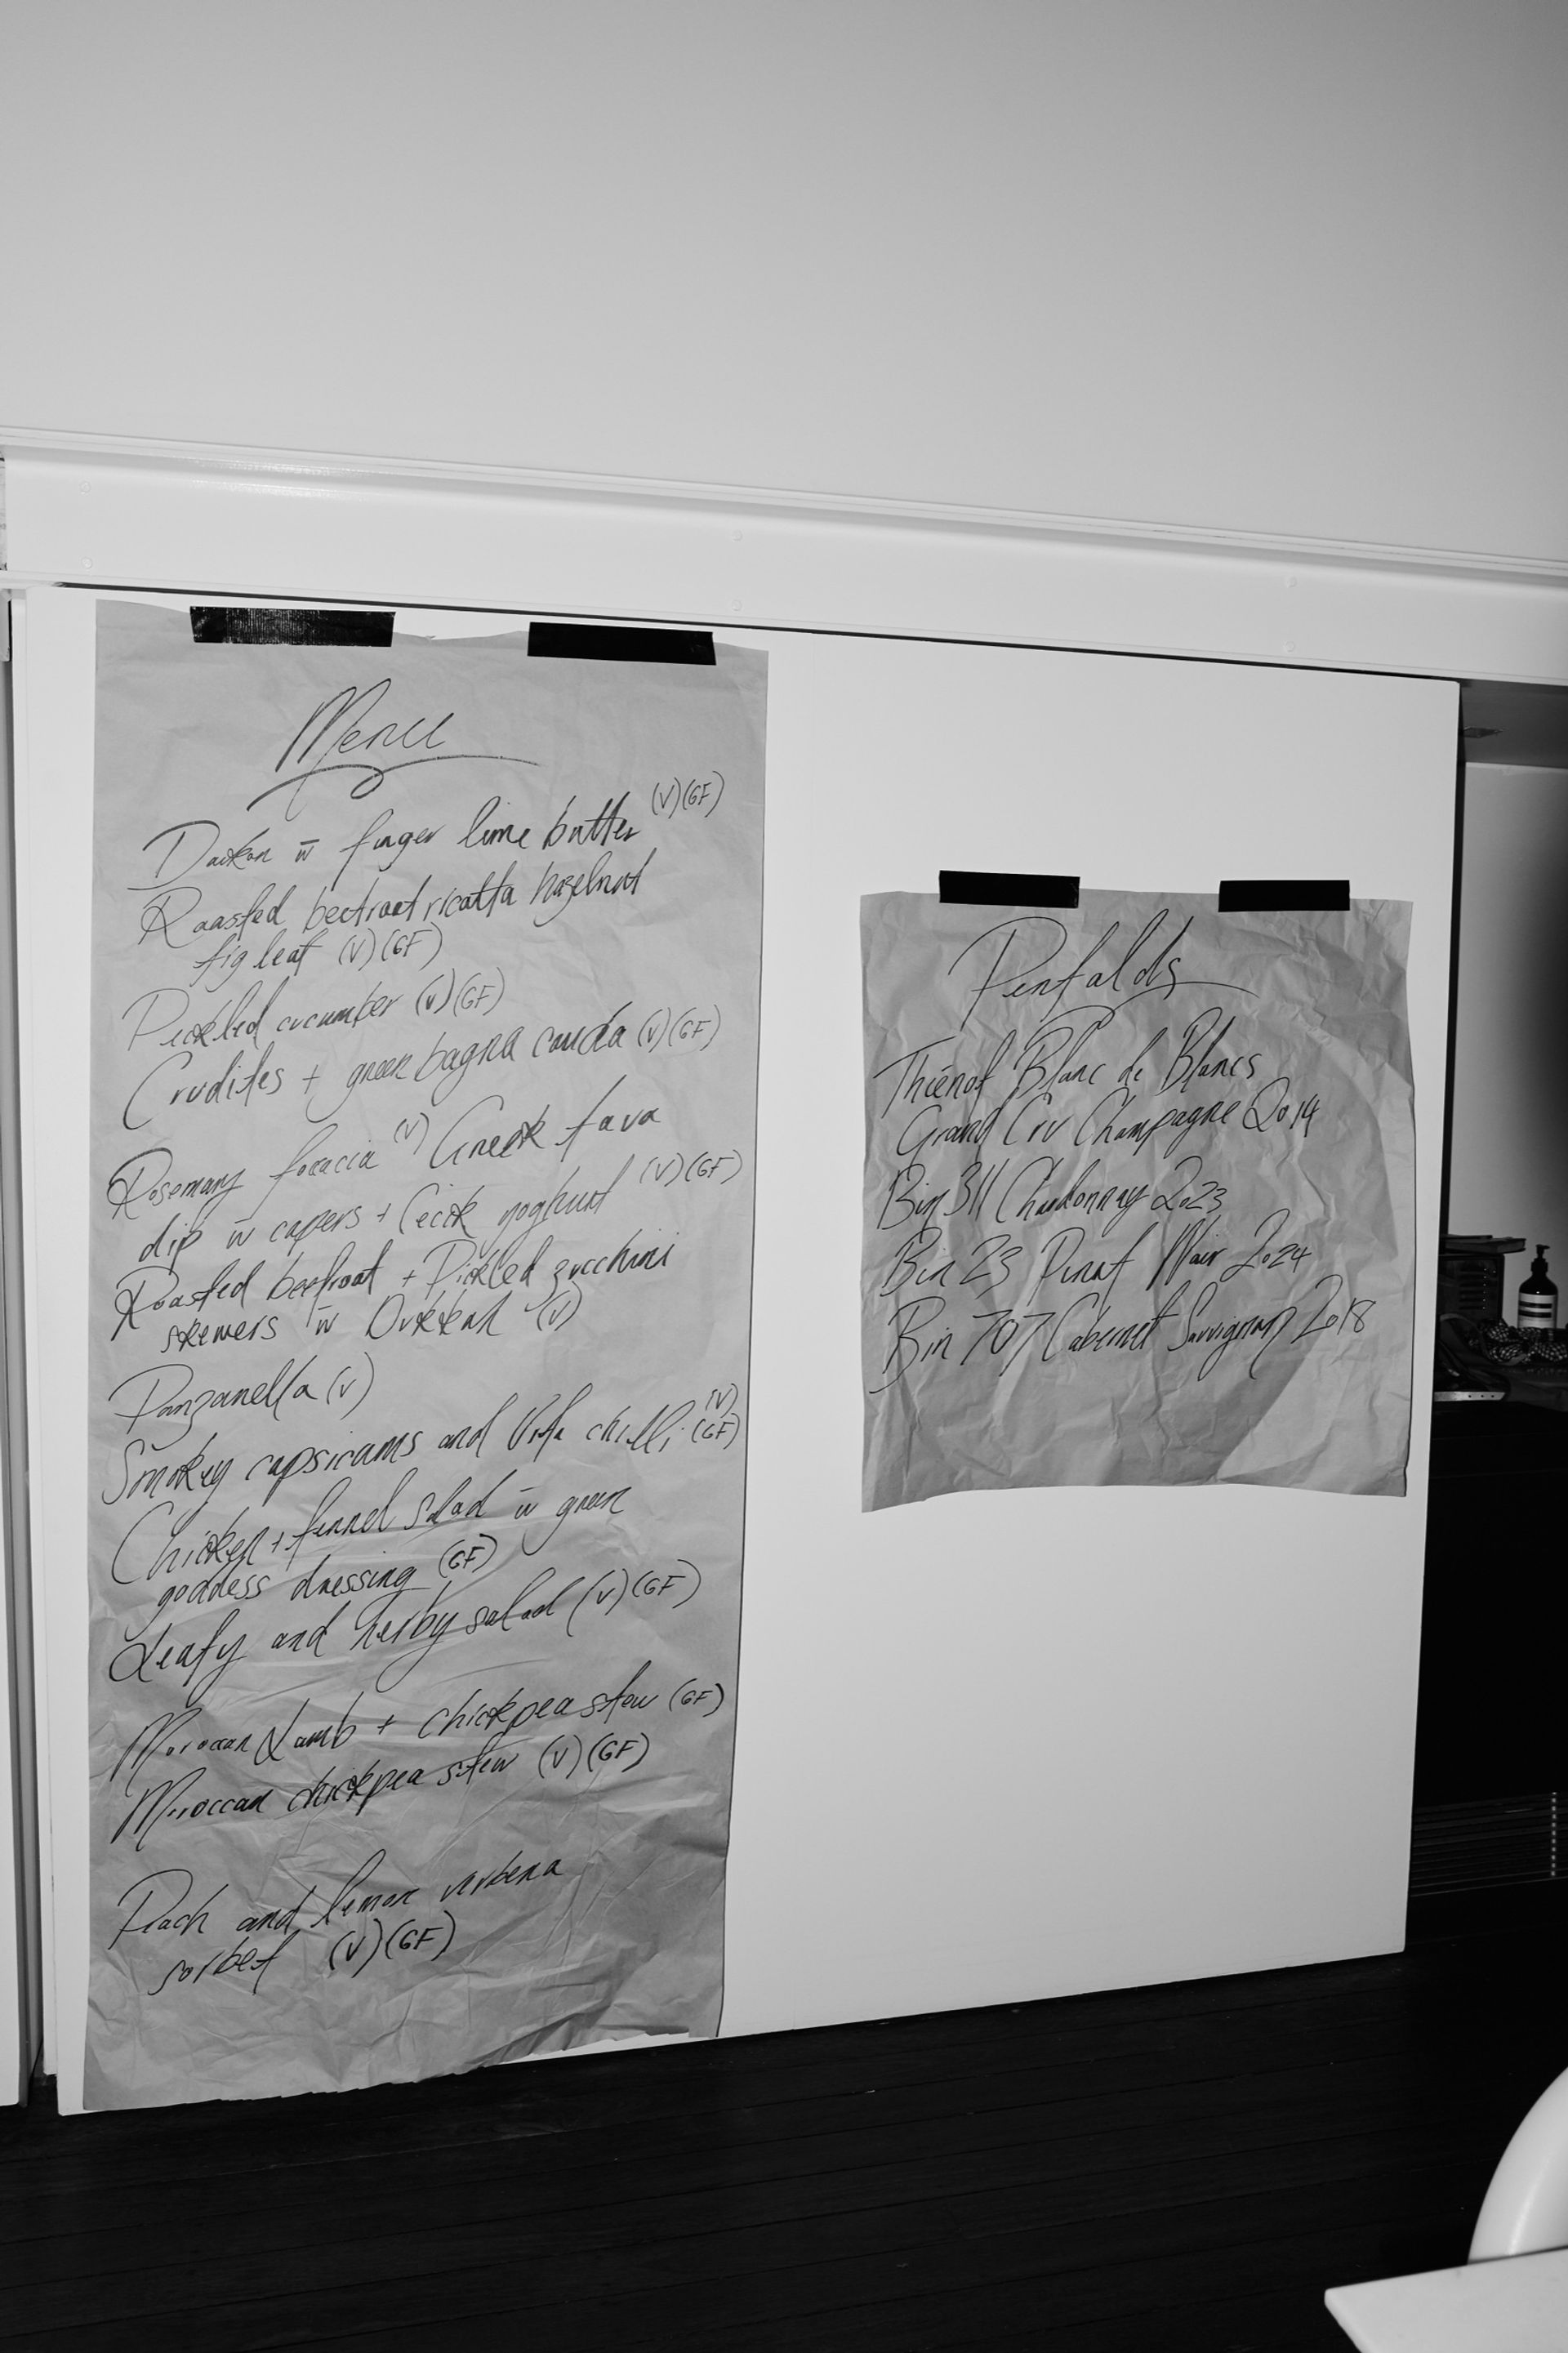 Menu
Daikon w̄ finger lime butter (V)(GF)
Roasted beetroot ricotta hazelnut
fig leaf (V)(GF)
Pickled cucumber (V)(GF)
Crudites + green bagna cauda (V)(GF)
Rosemary focaccia (V) Greek fava
dip w̄ capers + yoghurt (V)(GF)
Roasted beetroot + Pickled zucchini
skewers w̄ Dukkah (V)
Panzanella (V)
Smokey capsicums and chilli (V)(GF)
Chicken + fennel salad w̄ green
goddess dressing (GF)
Leafy and herby salad (V)(GF)
Moroccan Lamb + chickpea stew (GF)
Moroccan chickpea stew (V)(GF)
Peach and lemon verbena
sorbet (V)(GF)
Penfolds
Thiénot Blanc de Blancs
Grand Cru Champagne 2014
Bin 311 Chardonnay 2023
Bin 23 Pinot Noir 2024
Bin 707 Cabernet Sauvignon 2018